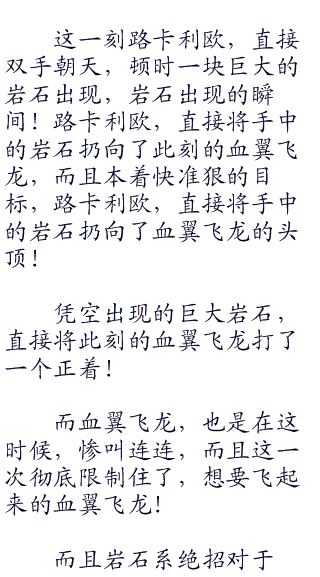 这一刻路卡利欧，直接
双手朝天，顿时一块巨大的
岩石出现，岩石出现的瞬
间！路卡利欧，直接将手中
的岩石扔向了此刻的血翼飞
龙，而且本着快准狠的目
标，路卡利欧，直接将手中
的岩石扔向了血翼飞龙的头
顶！
凭空出现的巨大岩石，
直接将此刻的血翼飞龙打了
一个正着！
而血翼飞龙，也是在这
时候，惨叫连连，而且这一
次彻底限制住了，想要飞起
来的血翼飞龙！
而且岩石系绝招对于